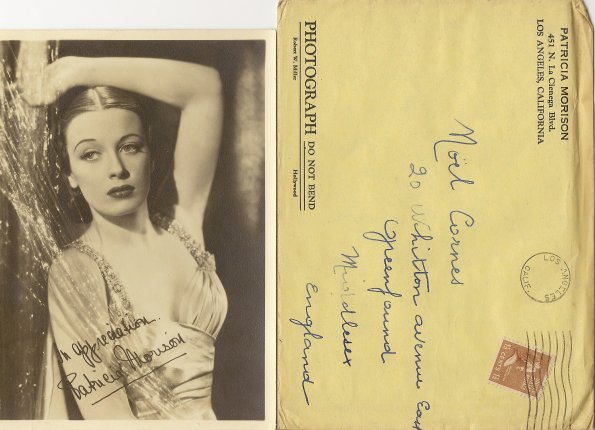 In appreciation.
Patricia Morison
PHOTOGRAPH DO NOT BEND
Robert W. Miller Hollywood
PATRICIA MORISON
451 N. La Cienega Blvd.
LOS ANGELES, CALIFORNIA
Noël Cornes
20 Whitton avenue East
Greenfound
Middlesex
England
LOS ANGELES
CALIF.